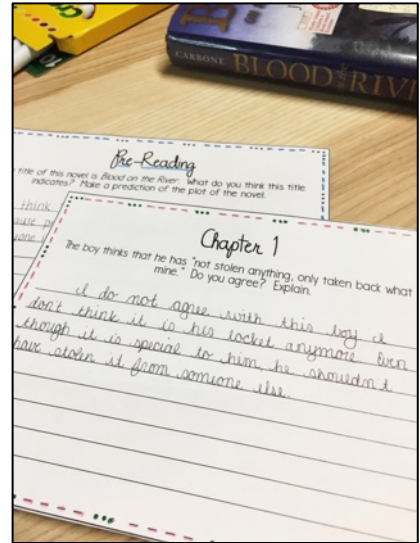 CARBONE BLOOD on the RIV
Pre-Reading
title of this novel is Blood on the River. What do you think this title
indicates? Make a prediction of the plot of the novel.
think
Chapter 1
The boy thinks that he has "not stolen anything, only taken back what
mine." Do you agree? Explain.
I do not agree with this boy I
don't think it is his locket anymore. Even
though it is special to him, he shouldn't
have stolen it from someone else.